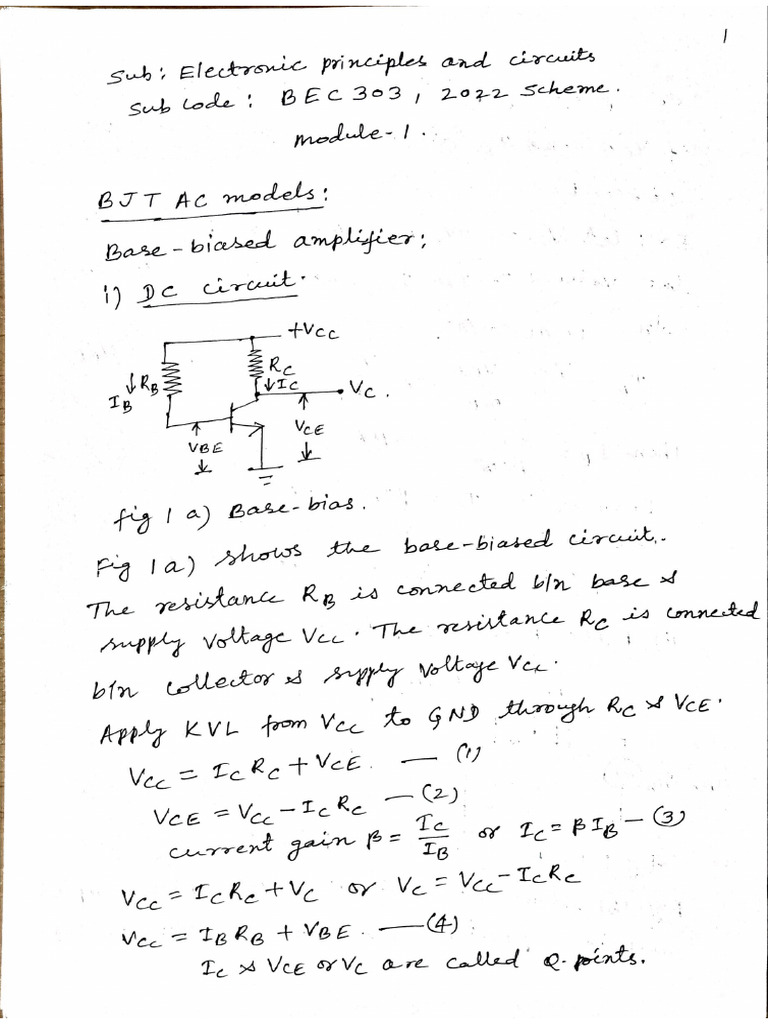 1
Sub: Electronic principles and circuits
Sub Code: BEC303, 2022 Scheme.
Module-1.
BJT AC models:
Base-biased amplifier;
i) DC circuit.
+VCC
RC
↓IC
↓RB
IB
VC.
VBE
VCE
fig 1 a) Base-bias.
Fig 1a) shows the base-biased circuit.
The resistance RB is connected b/n base &
supply voltage VCC. The resistance RC is connected
b/n collector & supply voltage VCC.
Apply KVL from VCC to GND through RC & VCE.
VCC = ICRC + VCE. — (1)
VCE = VCC - ICRC — (2)
current gain β = IC/IB or IC = βIB — (3)
VCC = ICRC + VC or VC = VCC - ICRC
VCC = IBRB + VBE. — (4)
IC & VCE or VC are called Q-points.